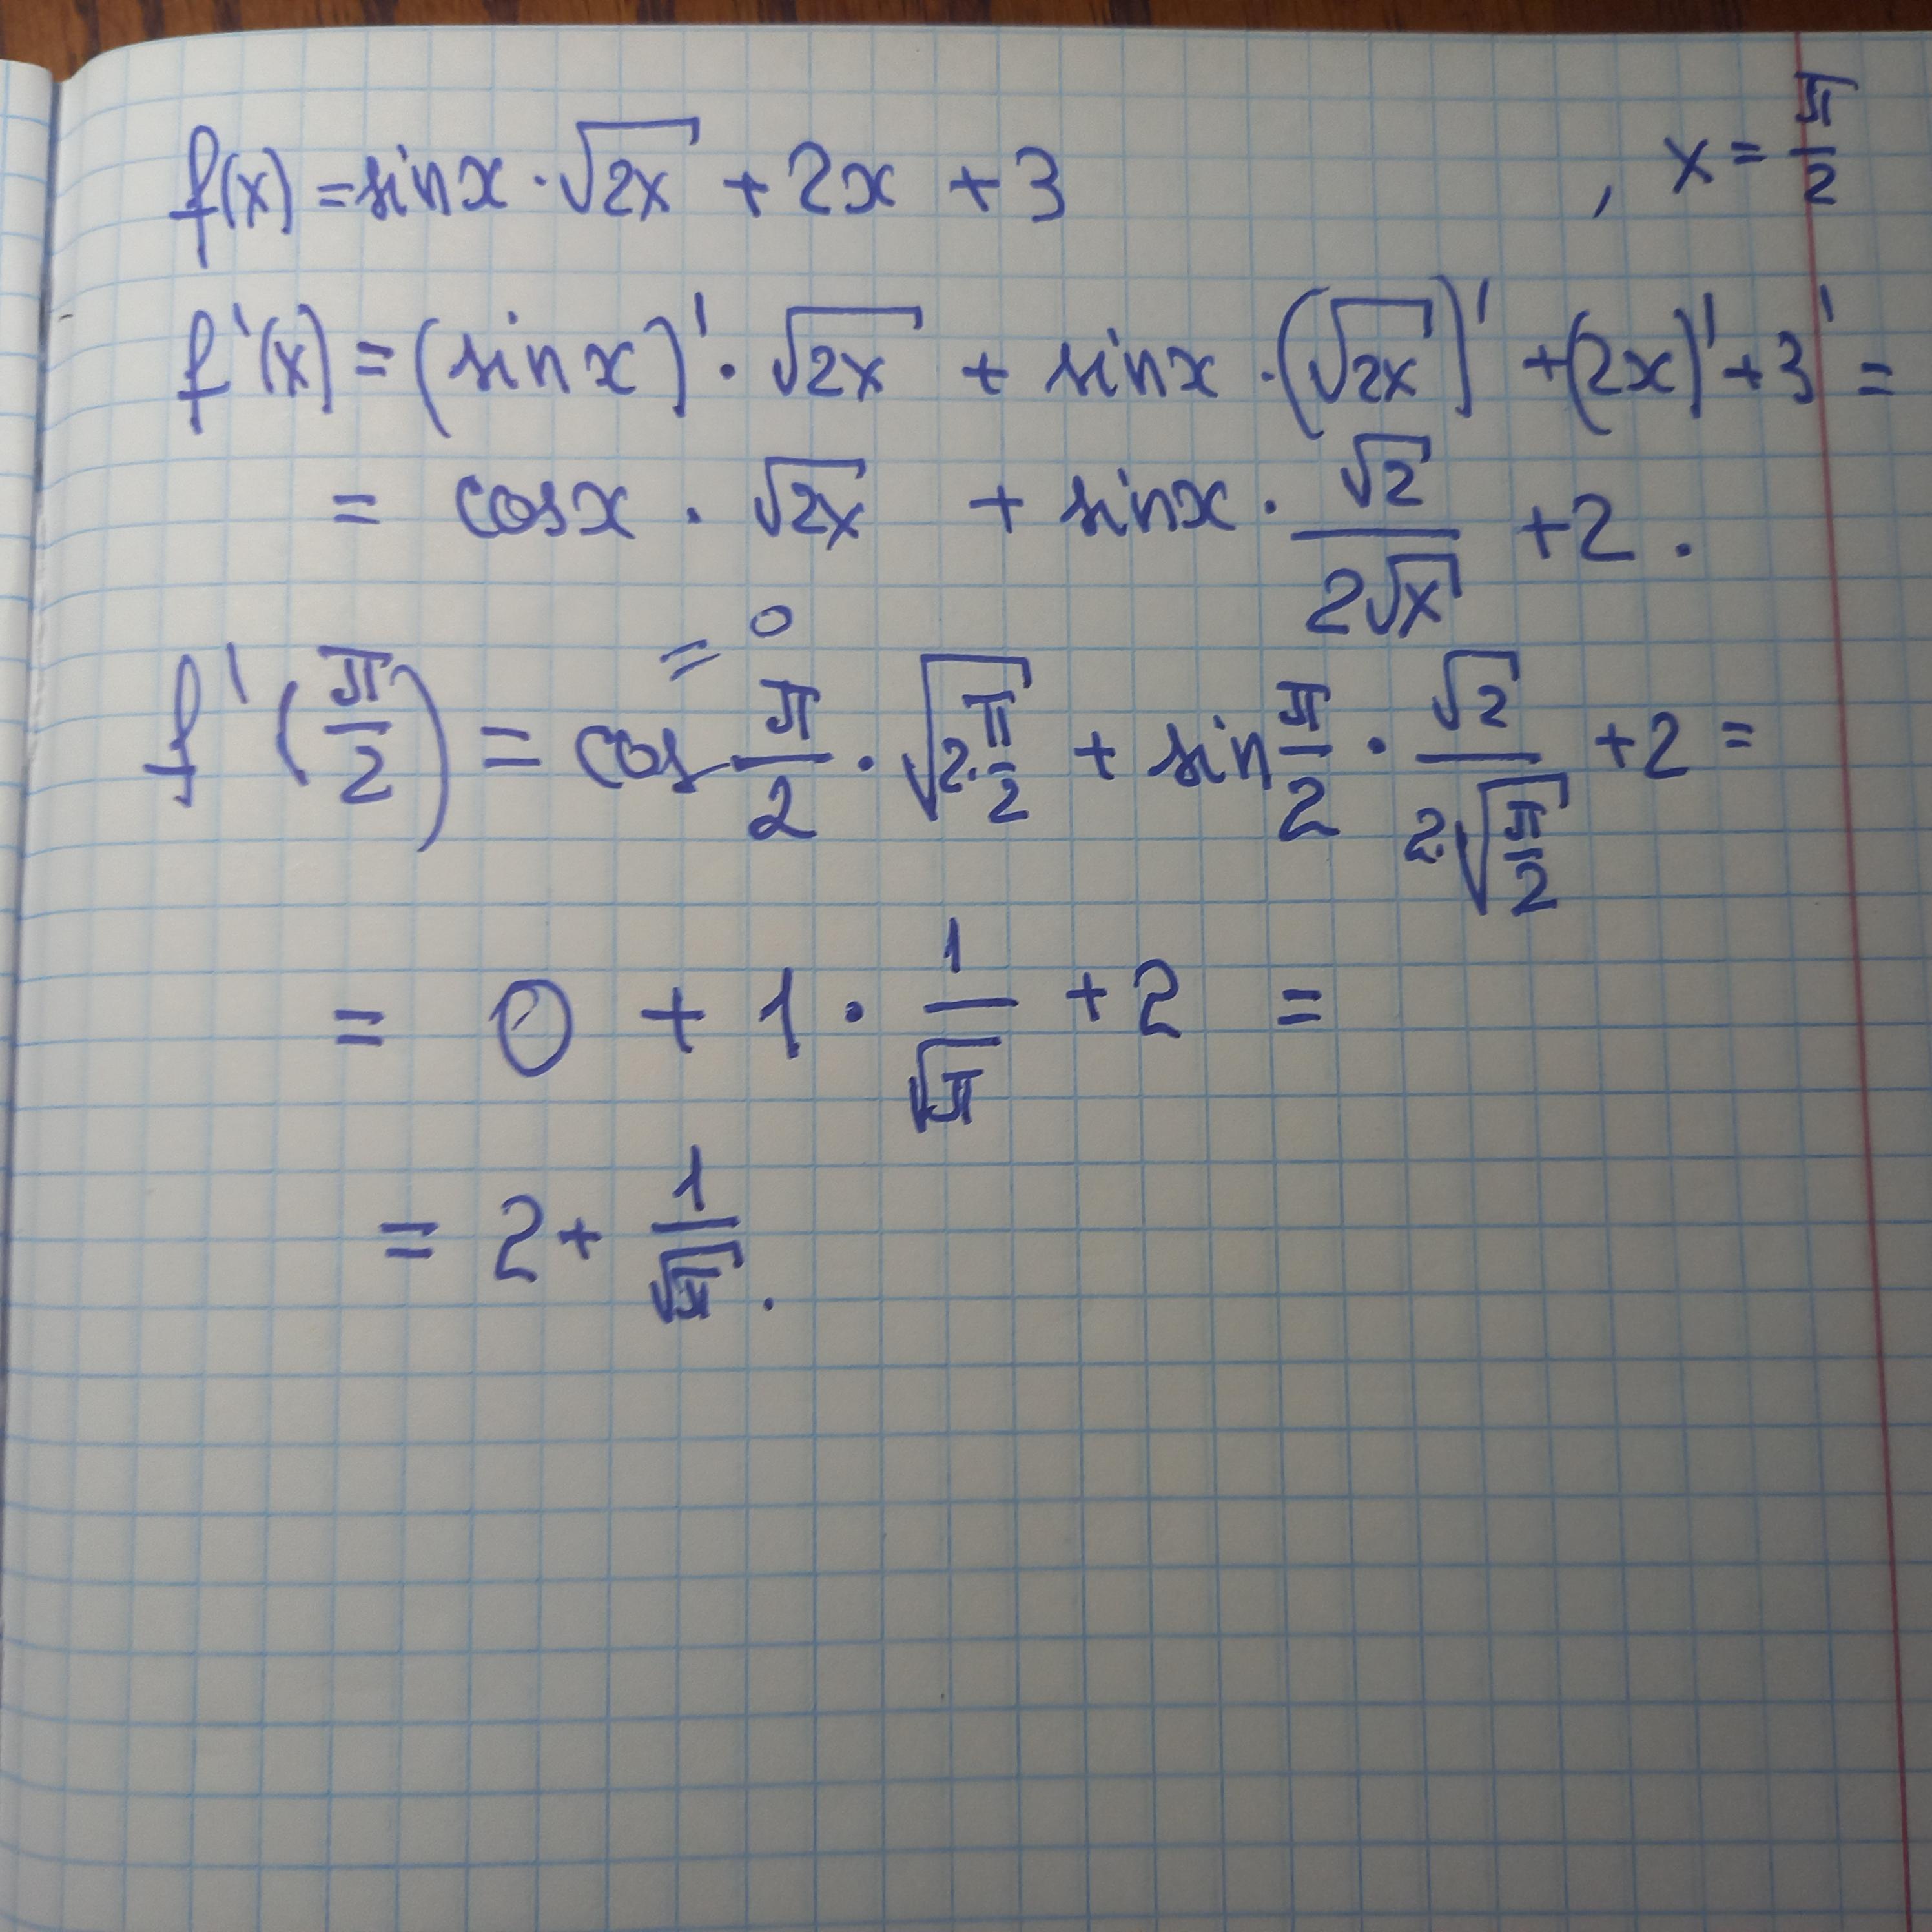 f(x) = sinx · √(2x) + 2x + 3 , x = π/2
f'(x) = (sin x)' · √(2x) + sinx · (√(2x))' + (2x)' + 3' =
= cosx · √(2x) + sinx · √2/(2√x) + 2 .
= 0
f'(π/2) = cos π/2 · √(2·π/2) + sin π/2 · √2/(2·√(π/2)) + 2 =
= 0 + 1 · 1/√π + 2 =
= 2 + 1/√π .